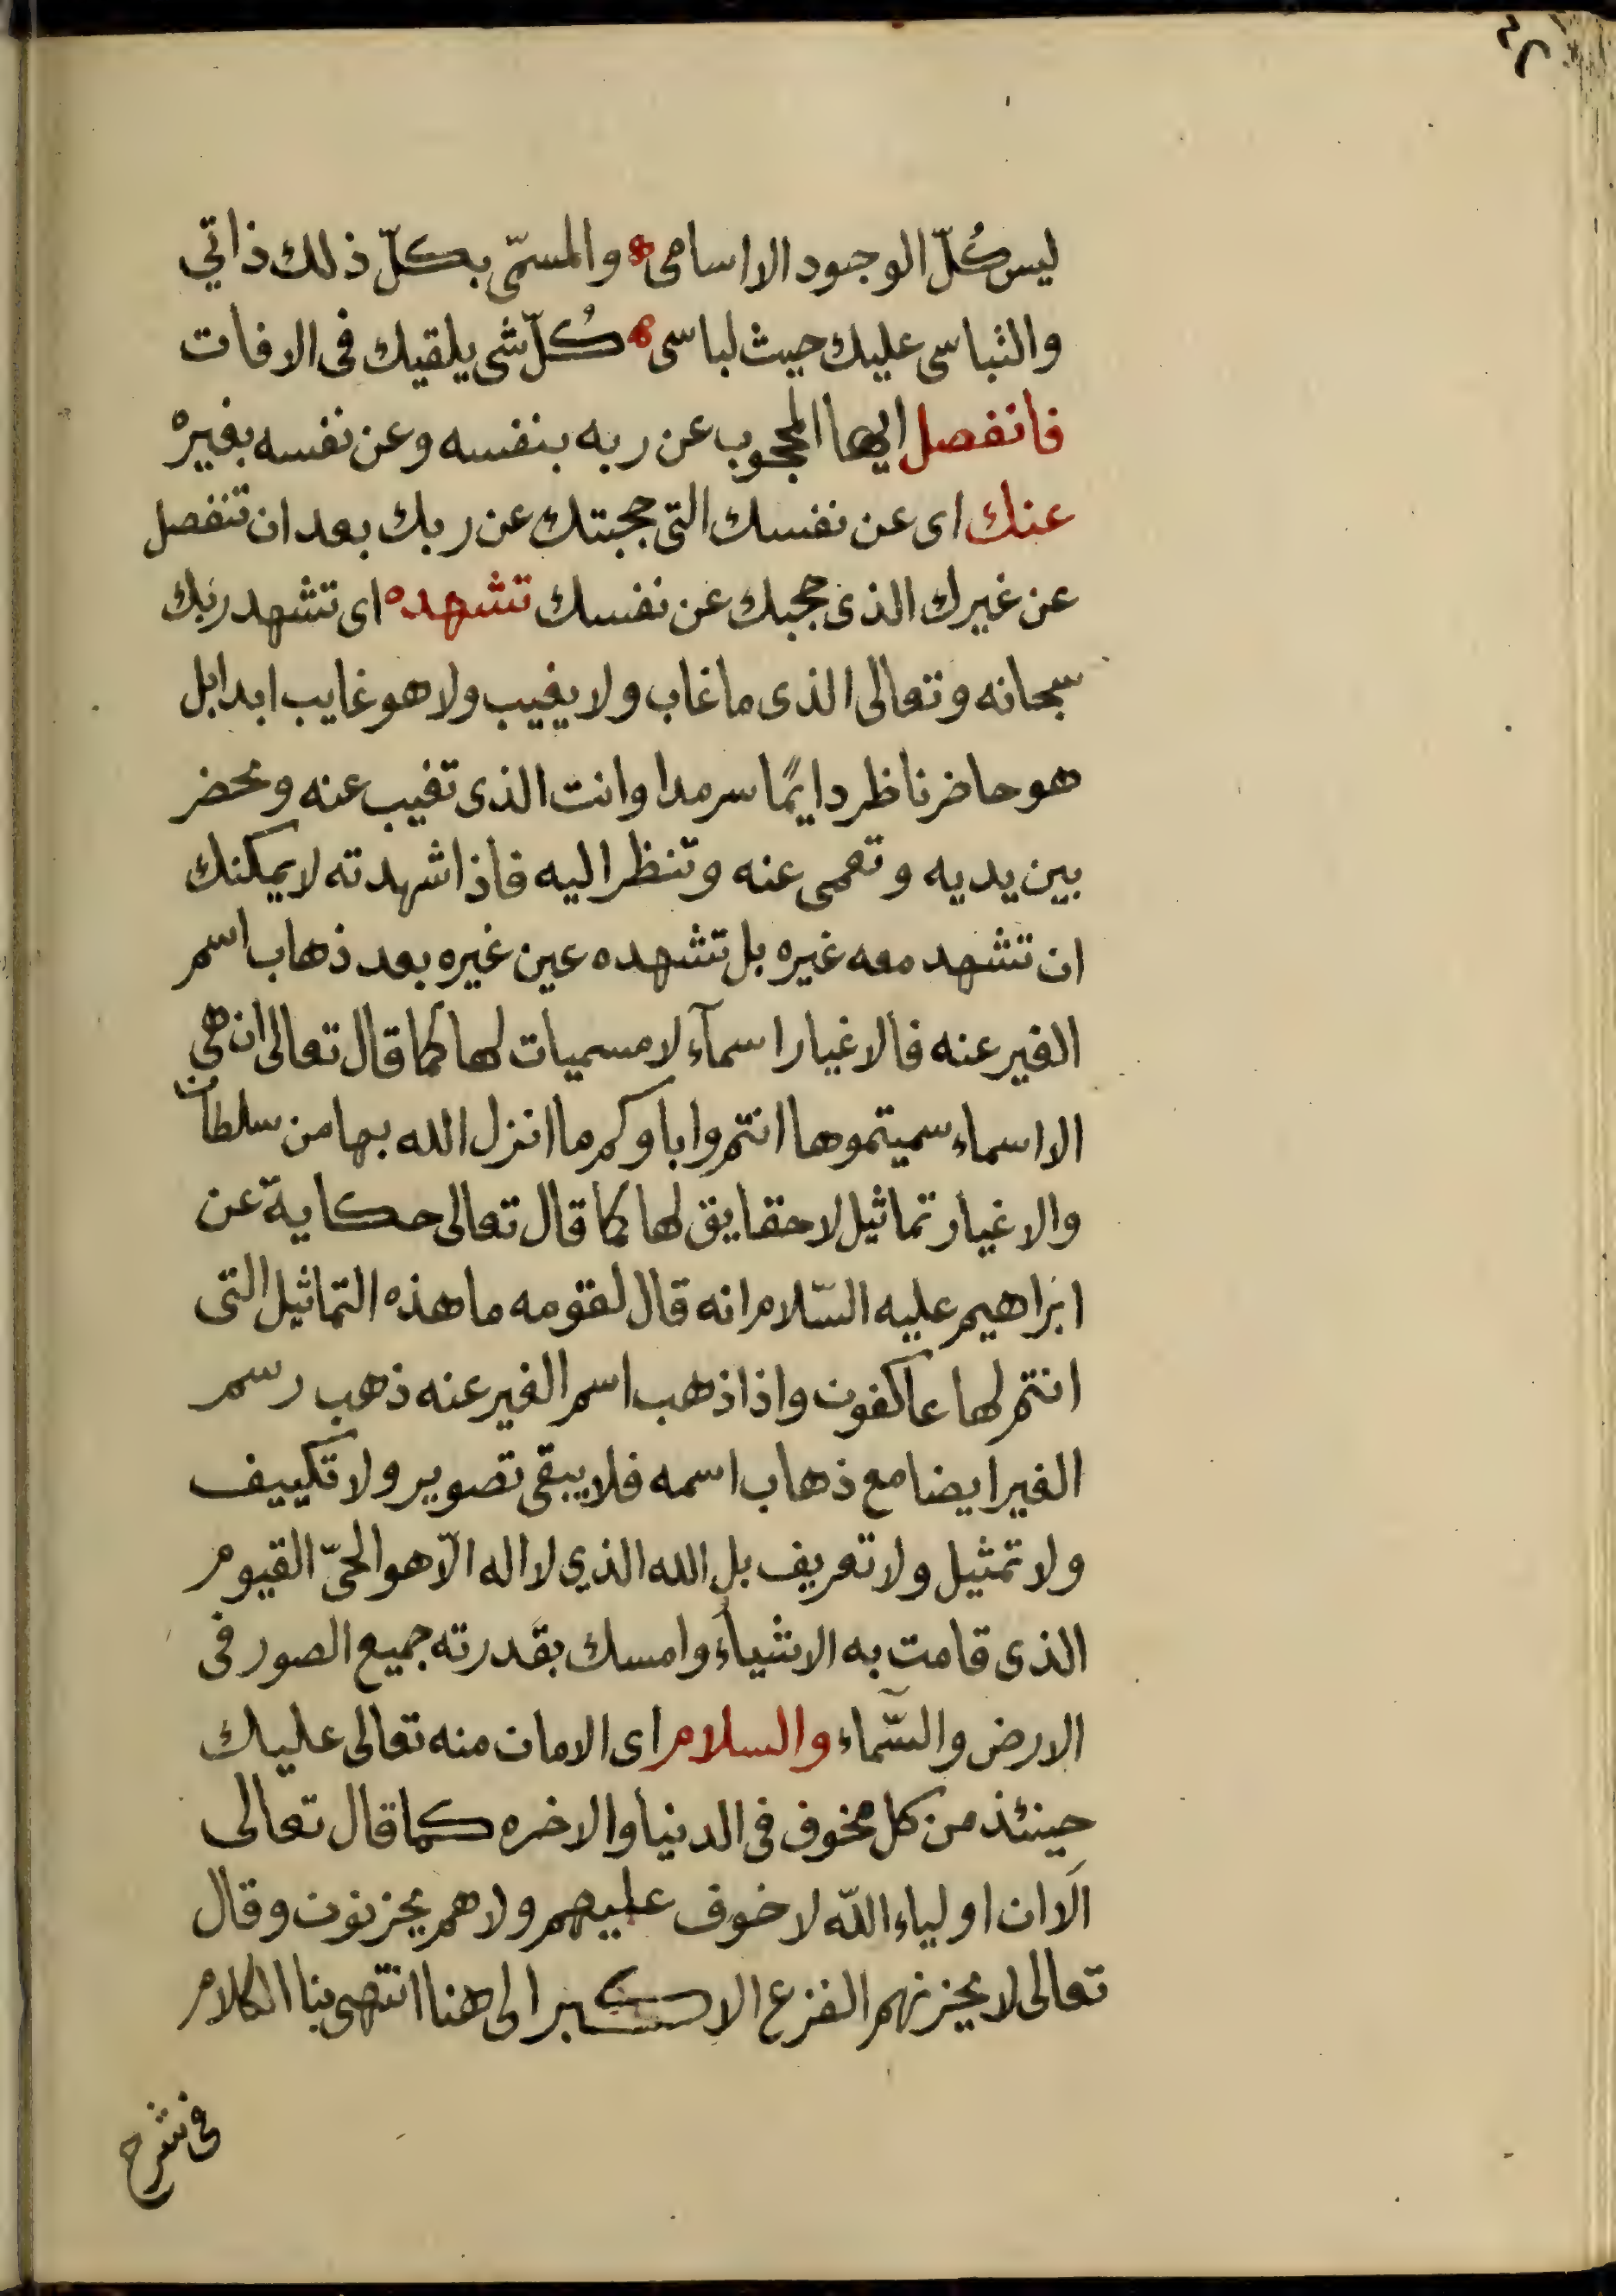 ليس كُلّ الوجود الا اسامى والمسمّى بكلّ ذلك ذاتي
والتباسى عليك حيث لباسى كُلّ شى يلقيك فى الافات
فانفصل ايها المحجوب عن ربه بنفسه وعن نفسه بغيره
عنك اى عن نفسك التى حجبتك عن ربك بعد ان تنفصل
عن غيرك الذى حجبك عن نفسك تشهده اى تشهد ربك
سبحانه وتعالى الذى ما غاب ولا يغيب ولا هو غايب ابدا بل
هو حاضر ناظر دايمًا سرمدا وانت الذى تغيب عنه وتحضر
بين يديه وتعمى عنه وتنظر اليه فاذا شهدته لا يمكنك
ان تشهد معه غيره بل تشهده عين غيره بعد ذهاب اسم
الغير عنه فالاغيار اسمآء لا مسميات لها كما قال تعالى ان هى
الا اسماء سميتموها انتم واباوكم ما انزل الله بها من سلطان
والاغيار تماثيل لا حقايق لها كما قال تعالى حكاية عن
ابراهيم عليه السّلام انه قال لقومه ما هذه التماثيل التى
انتم لها عاكفون واذا ذهب اسم الغير عنه ذهب رسم
الغير ايضا مع ذهاب اسمه فلا يبقى تصوير ولا تكييف
ولا تمثيل ولا تعريف بل الله الذي لا اله الّا هو الحىّ القيوم
الذى قامت به الاشياء وامسك بقدرته جميع الصور فى
الارض والسّماء والسلام اى الامان منه تعالى عليك
حينئذ من كل مخوف فى الدنيا والاخره كما قال تعالى
الَا ان اولياء اللّه لا خوف عليهم ولا هم يحزنون وقال
تعالى لا يحزنهم الفزع الاكبر الى هنا انتهى بنا الكلام
فى شرح